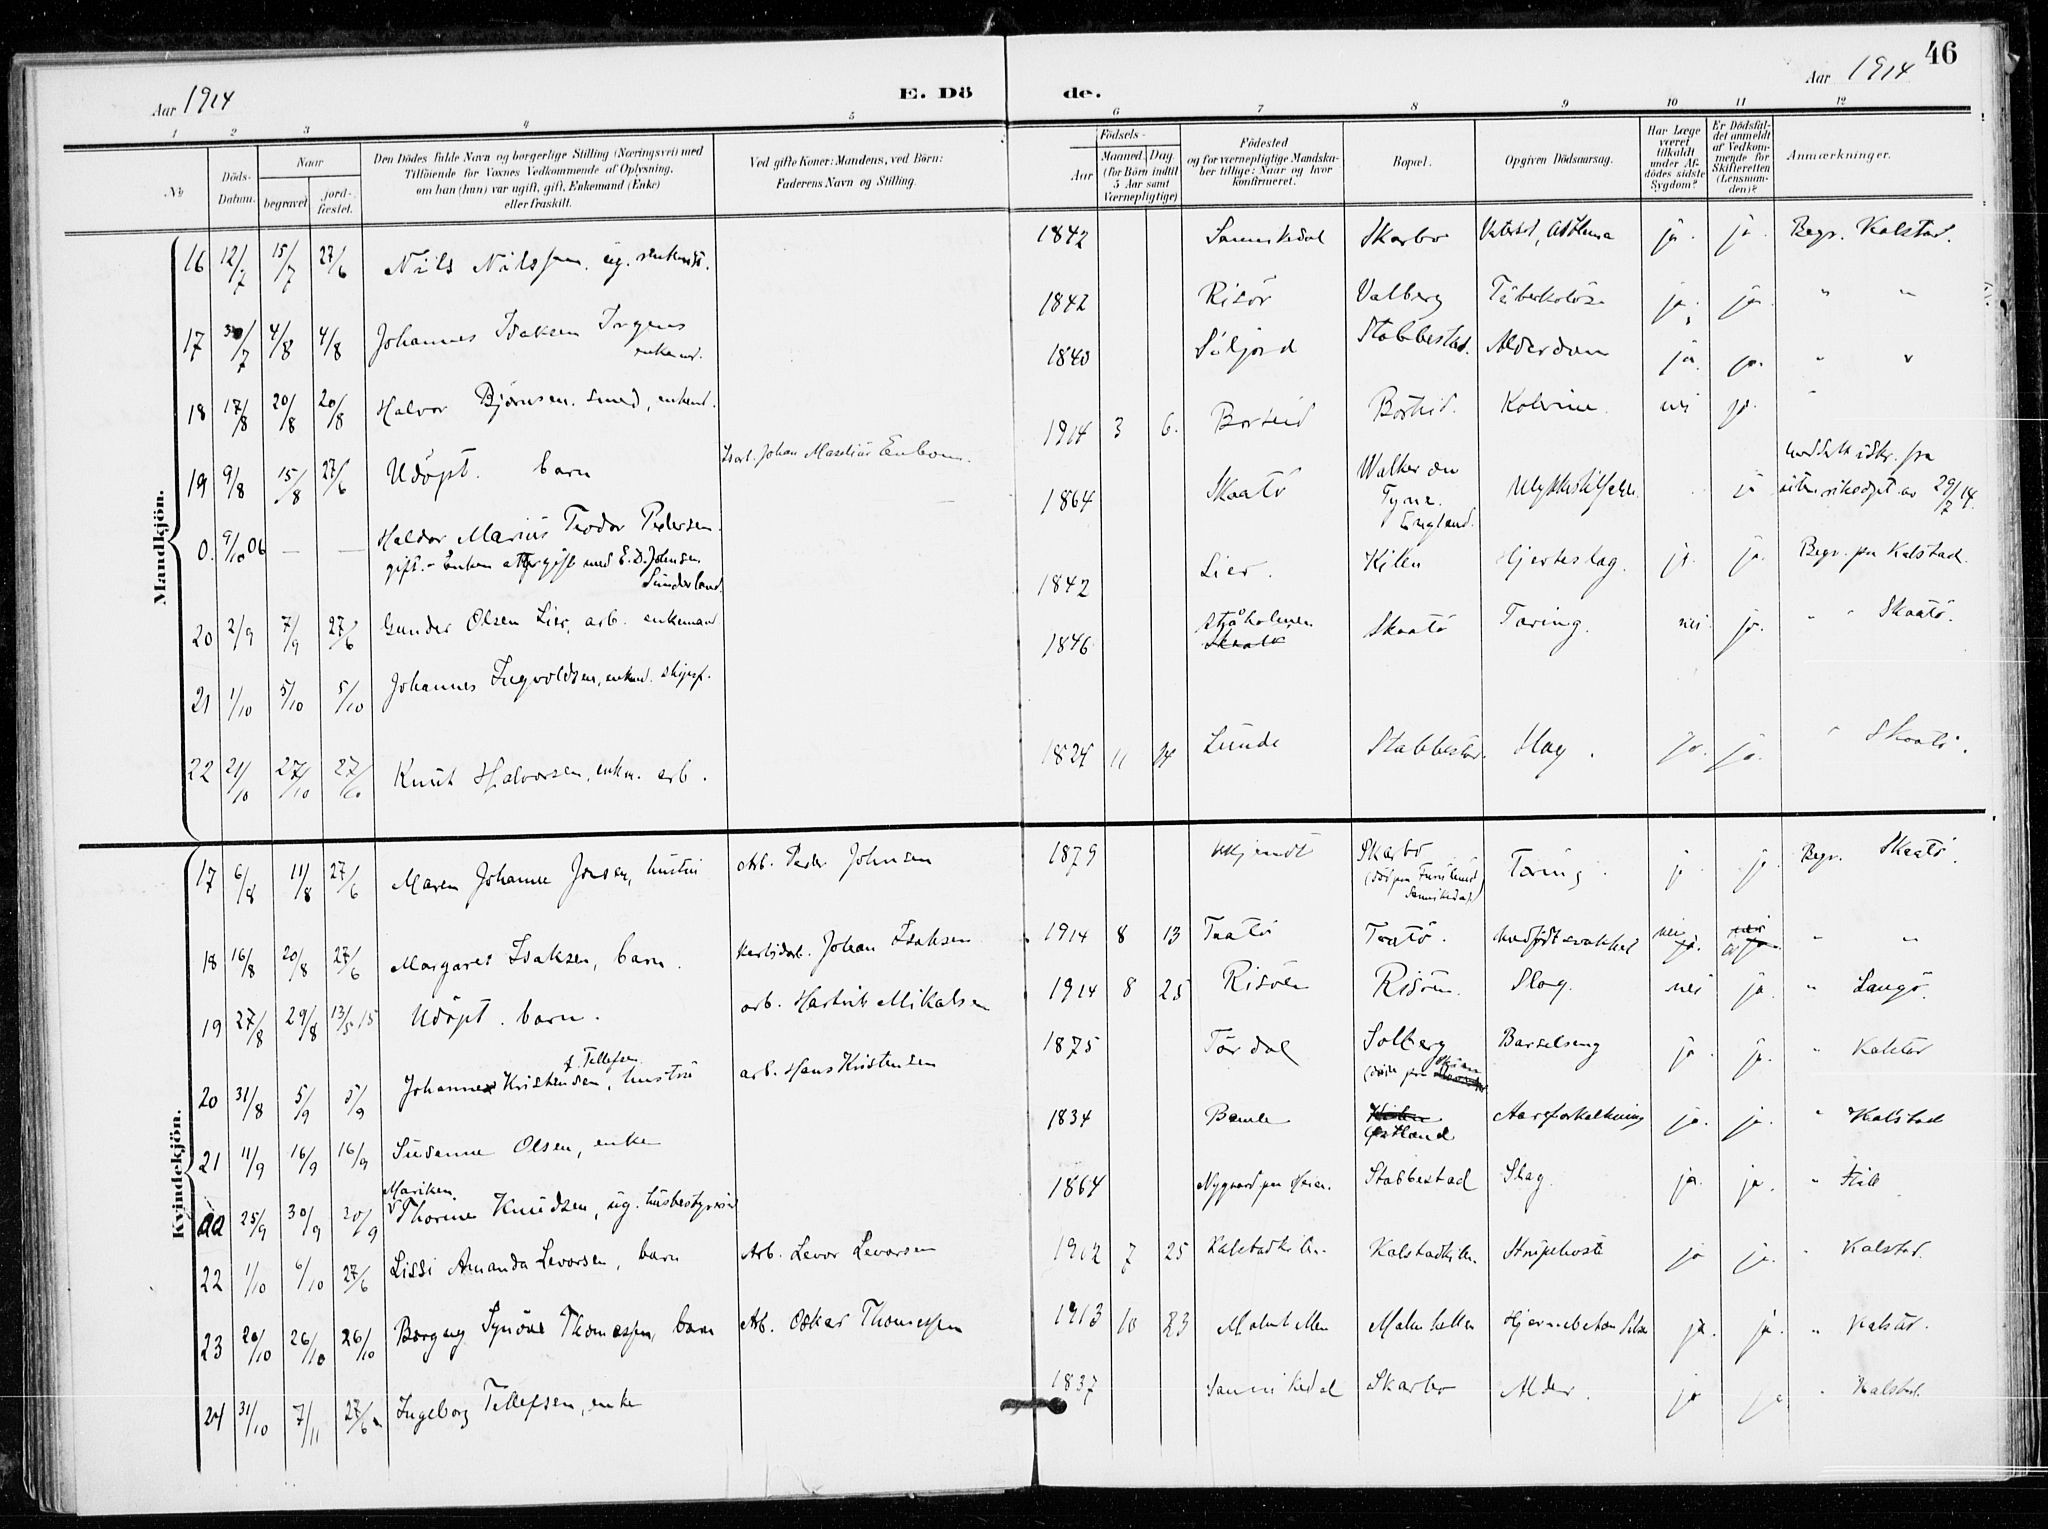 46
Aar 1914
E. Döde.
Aar 1914
1 2 3 4 5 6 7 8 9 10 11 12
No
Döds-Datum.
Naar
begravet
jord-fæstet.
Den Dödes fulde Navn og borgerlige Stilling (Næringsvei) med
Tilföiende for Voxnes Vedkommende af Oplysning,
om han (hun) var ugift, gift, Enkemand (Enke)
eller fraskilt.
Ved gifte Koner: Mandens, ved Börn:
Faderens Navn og Stilling.
Födsels-
Aar
Maaned. Dag.
(for Börn indtil
5 Aar samt
Værnepligtige)
Födested
og for værnepligtige Mandska-
ber tillige: Naar og hvor
konfirmeret.
Bopæl.
Opgiven Dödsaarsag.
Har Læge
været
tilkaldt
under Af-
dödes sidste
Sygdom?
Er Dödsfal-
det anmeldt
af Vedkom-
mende for
Skifteretten
(Lensman-
den)?
Anmærkninger.
Mandkjön.
16 12/7 15/7 27/6 Nils Nilssen, ug. 1842 Sannikedal Skarbo ja. ja. Begr. Kalstad.
17 30/7 4/8 4/8 Johannes Isaksen Irgens enkem. 1842 Risör Valberg Tuberkulose ja. ja. " "
18 17/8 20/8 20/8 Halvor Björnsen. smed, enkem. 1840 Siljord Stabbestad. Alderdom ja. ja. " "
19 9/8 15/8 27/6 Udöpt. barn Johan Enbom. 1914 3 6. Borteid Borteid. Kolerine. nei ja. "
0. 9/10 06 — — Haldor Marius Teodor Pedersen.
gift. - Enken gift med E. D. Johnsen
Sunderland. 1864 Skaatö Walker on
Tyne
England. ja 29/7 14.
20 2/9 7/9 27/6 Gunder Olsen Lier, arb. enkemand 1842 Lier. Kilen Hjerteslag. ja. ja. Begr. paa Kalstad.
21 1/10 5/10 5/10 Johannes Ingvoldsen, enkem. 1846 Stråholmen Skaatö Tæring. nei ja. " Skaatö.
22 21/10 27/10 27/10 Knut Halvorsen, enkm. arb. 1824 11 14 Lunde Stabbestad. Slag. ja. ja. " Skaatö.
Kvindekjön.
17 6/8 11/8 27/6 Maren Johanne Jonsen, hustru Arb. Peder Johnsen 1879 Skarbö Tæring. j. ja. Begr. Skaatö.
18 16/8 20/8 27/6 Margaret Isaksen, barn. Johan Isaksen 1914 8 13 Taatö Taatö. Medfödt svakhet nei " "
19 27/8 29/8 13/5 15 Udöpt. barn. arb. Hartvik Mikalsen 1914 8 25 Risöen Risöen. Slag. nei ja. " Langö.
20 31/8 5/9 5/9 Johanne Kristensen, hustru
f. Tellefsen. arb. Hans Kristensen 1875 Tördal Solberg Barselseng ja. ja. " Kalstad
21 11/9 16/9 16/9 Susanne Olsen, enke 1834 Bamle Östland Aareforkalkning ja. ja. " Kalstad
22 25/9 30/9 30/9 Mariken
Thorine Knudsen, ug. husbestyrerinde 1864 Stabbestad Slag. ja. ja. "
22 1/10 6/10 27/6 Lissi Amanda Levorsen, barn Arb. Levor Levorsen 1912 7 25 Kalstadkilen. Kalstadkilen. Strupehoste ja ja. " Kalstad.
23 20/10 26/10 26/10 Borgny Synöve Thomassen, barn Arb. Oskar Thomassen 1913 10 23 Malmhellen Malmhellen Hjernebetændelse ja. ja. " Kalstad.
24 31/10 7/11 27/6 Ingeborg Tellefsen, enke 1837 Sannikedal Skarbo Alder. ja ja " Kalstad.